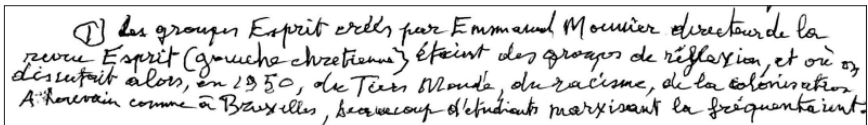 ① Les groupes Esprit créés par Emmanuel Mounier directeur de la
revue Esprit (gauche chretienne) étaient des groupes de réflexion, et où on
discutait alors, en 1950, du Tiers Monde, du racisme, de la colonisation
A Louvain comme à Bruxelles, beaucoup d'etudiants marxisant la fréquentaient.